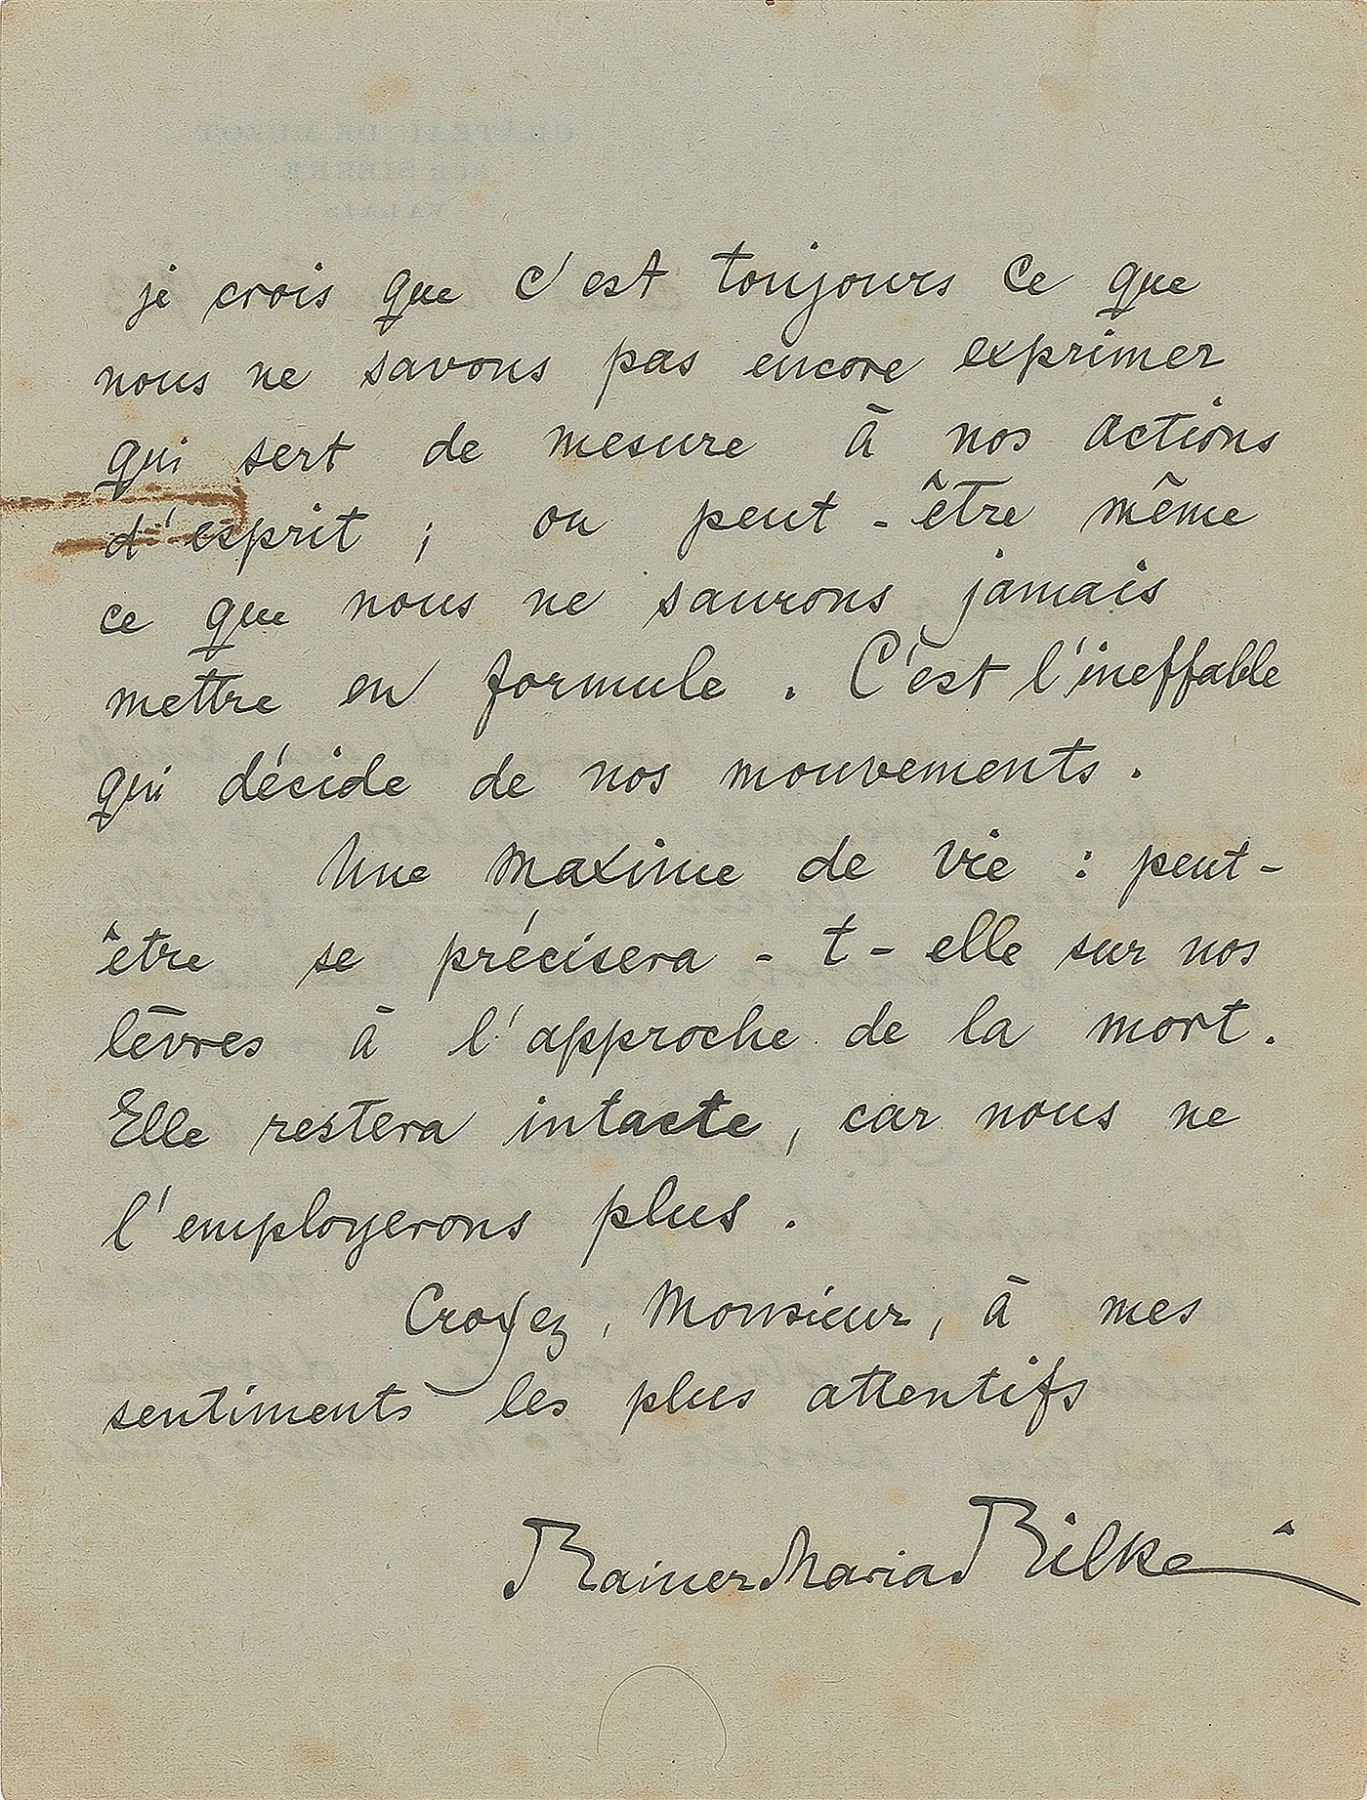 CHATEAU DE MUZOT
SUR SIERRE
VALAIS
je crois que c'est toujours ce que
nous ne savons pas encore exprimer
qui sert de mesure à nos actions
d'esprit ; ou peut-être même
ce que nous ne saurons jamais
mettre en formule . C'est l'ineffable
qui décide de nos mouvements .
Une maxime de vie : peut-
être se précisera - t - elle sur nos
lèvres à l'approche de la mort .
Elle restera intacte , car nous ne
l'employerons plus .
Croyez , Monsieur , à mes
sentiments les plus attentifs
Rainer Maria Rilke